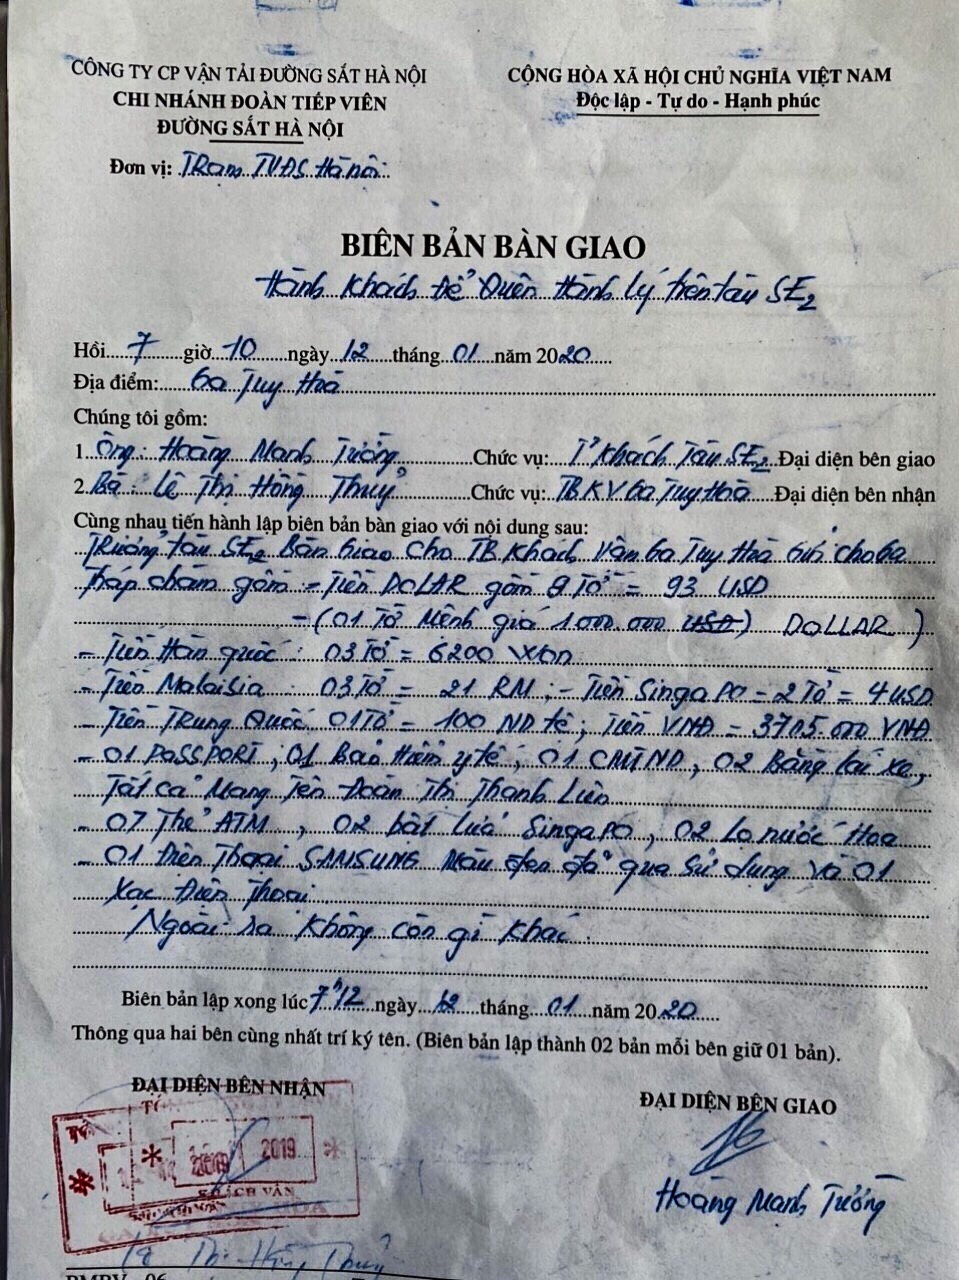 CÔNG TY CP VẬN TẢI ĐƯỜNG SẮT HÀ NỘI
CHI NHÁNH ĐOÀN TIẾP VIÊN
ĐƯỜNG SẮT HÀ NỘI
Đơn vị: Trạm TVĐS Hà nội
CỘNG HÒA XÃ HỘI CHỦ NGHĨA VIỆT NAM
Độc lập - Tự do - Hạnh phúc
BIÊN BẢN BÀN GIAO
Hành khách để Quên Hành lý trên tàu SE2
Hồi 7 giờ 10 ngày 12 tháng 01 năm 2020
Địa điểm: Ga Tuy Hoà
Chúng tôi gồm:
1. Ông: Hoàng Mạnh Tưởng Chức vụ: T² Khách Tàu SE2 Đại diện bên giao
2. Bà: Lê Thị Hồng Thuỷ Chức vụ: TB KV Ga Tuy Hoà Đại diện bên nhận
Cùng nhau tiến hành lập biên bản bàn giao với nội dung sau:
Trưởng tàu SE2 Bàn Giao Cho TB Khách Vận Ga Tuy Hoà Gửi cho Ga
Tháp chàm gồm - Tiền DOLAR gồm 9 Tờ = 93 USD
- (01 Tờ Mệnh giá 1.000.000 USD) DOLLAR)
- Tiền Hàn quốc: 03 Tờ = 6200 Won
- Tiền Malaisia: 03 Tờ = 21 RM; - Tiền Singapo = 2 Tờ = 4 USD
- Tiền Trung Quốc 01 Tờ = 100 ND tệ; Tiền VNĐ = 3705.000 VNĐ
- 01 PASSPORT; 01 Bảo Hiểm y tế; 01 CMTND, 02 Bằng lái xe,
Tất cả Mang Tên Đoàn Thị Thanh Liên
- 07 Thẻ ATM, 02 bật lửa Singapo, 02 lọ nước Hoa
- 01 Điện Thoại SAMSUNG Màu đen đã qua sử dụng và 01
xạc Điện Thoại
Ngoài ra không còn gì khác.
Biên bản lập xong lúc 7h12 ngày 12 tháng 01 năm 2020
Thông qua hai bên cùng nhất trí ký tên. (Biên bản lập thành 02 bản mỗi bên giữ 01 bản).
ĐẠI DIỆN BÊN NHẬN
ĐẠI DIỆN BÊN GIAO
2019
2019
KHÁCH VẬN
Hoàng Mạnh Tưởng
Lê Thị Hồng Thuỷ